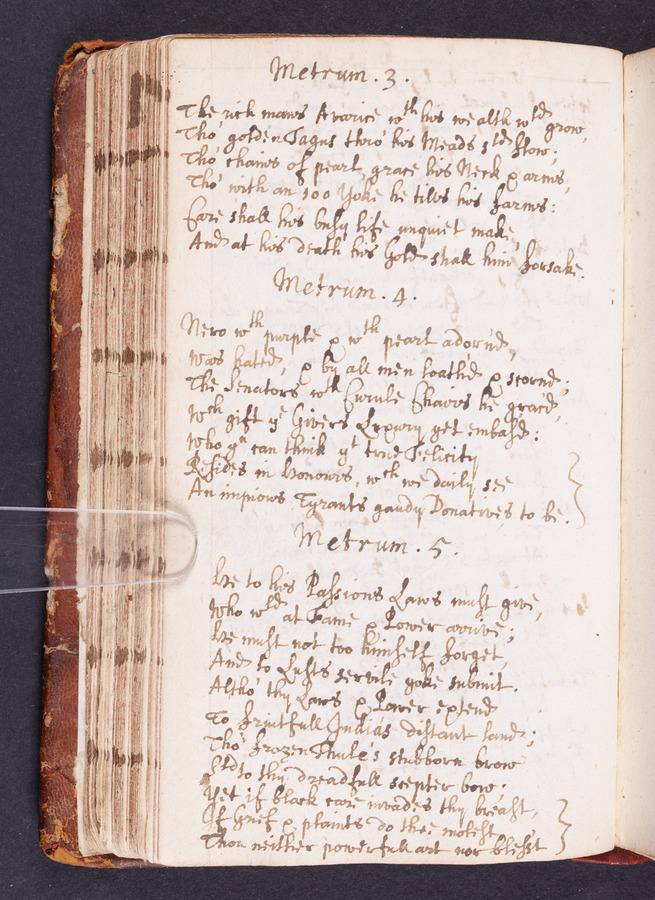 Metrum . 3 .
The rich mans Avarice wth his wealth wld grow,
Tho' golden Tagus thro' his Meads sld flow;
Tho' chains of pearl grace his Neck & arms,
Tho' with an 100 Yoke he tills his farms:
Care shall his busy life unquiet make,
And at his death his Gold shall him forsake.
Metrum . 4 .
Nero wth purple & wth pearl adorn'd,
Was hated, & by all men loath'd & scornd;
The Senators wth Curule Chairs he grac'd,
Wch gift ye Givers Luxury yet embas'd:
Who yn can think yt true Felicity
Resides in Honours, wch we daily see
An impious Tyrants gaudy Donatives to be.
Metrum . 5 .
He to his Passions Laws must give,
Who wld at Fame & Power arrive;
He must not too himself forget,
And to Lusts servile yoke submit.
Altho' thy Laws & Power extend
To fruitfull India's distant land;
Tho' frozen Thule's stubborn brow
Sld to thy dreadfull scepter bow:
Yet if black care invades thy breast,
If Grief & plaints do thee molest,
Thou neither powerfull art nor blesst